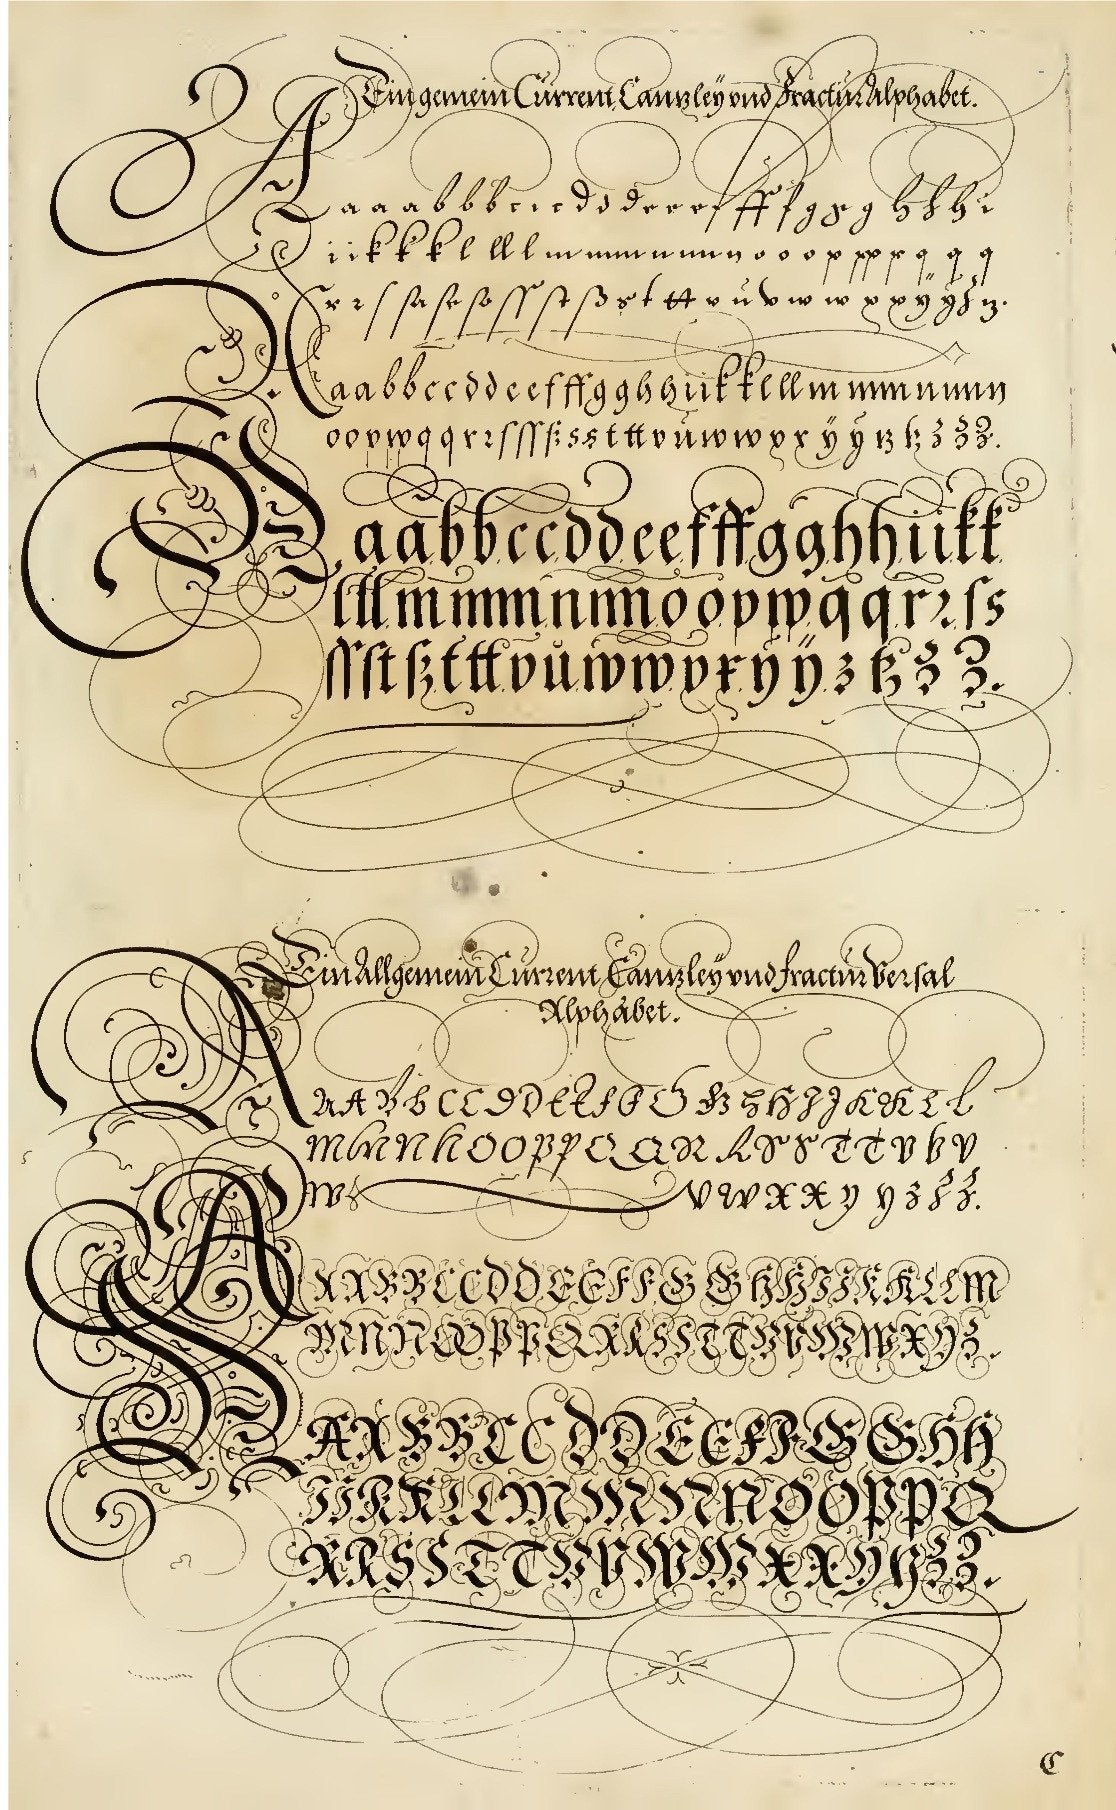 Ein gemein Current, Cantzley vnd Fractur Alphabet.
A a a a b b b c c c d d d e e e f ff f g g g h h h i
i i k k k l ll l m m m n n n o o o p pp p q q q
r r ſ ſa ſe ſo ſſ ſt ß s t tt v u v w w x x y ÿ z tz.
a a b b c c d d e e f ff g g h h i i k k l ll m m m n n n
o o p p q q r r ſ ſſ ß s s t tt v u w w x x ÿ ÿ tz tz z z z.
a a b b c c d d e e f ff g g h h i i k k
l ll m m m n n n o o p p q q r r ſ s
ſſ ſt ß t tt v u w w x x ÿ ÿ z tz z z.
Ein Allgemein Current, Cantzley vnd Fractur Versal
Alphabet.
A A A B B C C D D E E F G G H H H I J K K L L
M M N N O O P P Q Q R R S S T T V V V
W V W X X Y Y Z Z Z.
A A A B B C C D D E E F F G G H H I I K K L L M
M N N O O P P Q R R S S T T V V W W X Y Z.
A A B B C C D D E E F F G G H H
I I K K L L M M N N O O P P Q
R R S S T T V V W W X X Y Y Z Z.
C